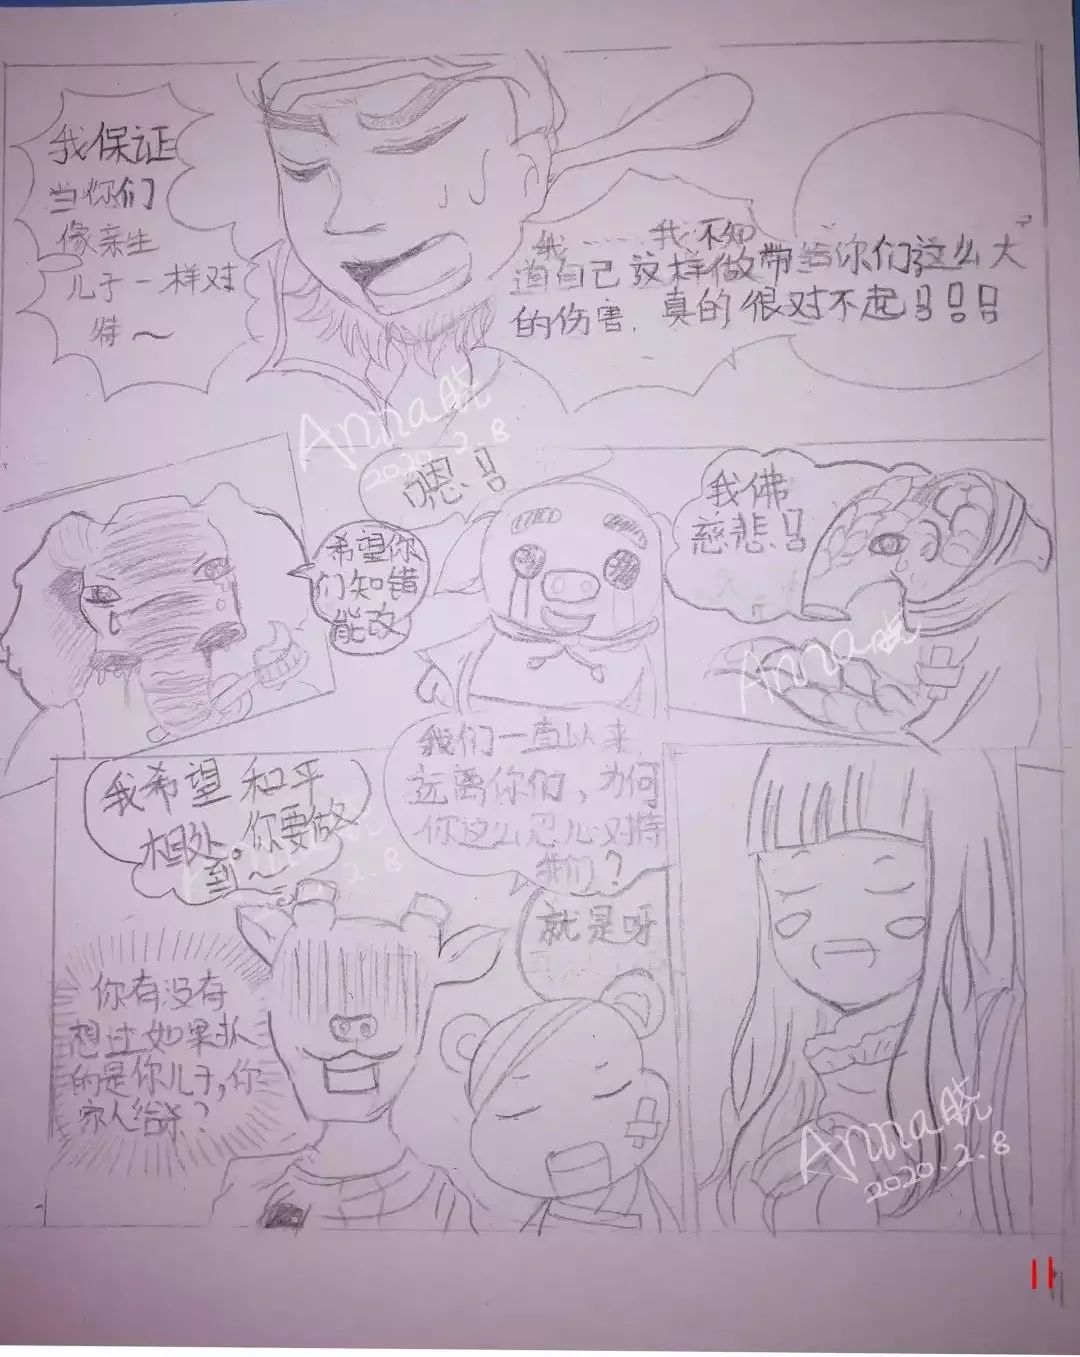 我保证
当你们
像亲生
儿子一样对
待～
我……我不知
道自己这样做带给你们这么大
的伤害，真的很对不起!!!
Anna晓
2020.2.8
嗯!
希望你
们知错
能改
我佛
慈悲!
Anna晓
我希望和平
相处。你要做
到～
我们一直以来
远离你们，为何
你这么忍心对待
我们？
2.8
就是呀
你有没有
想过如果扒
的是你儿子，你
家人给杀？
Anna晓
2020.2.8
11